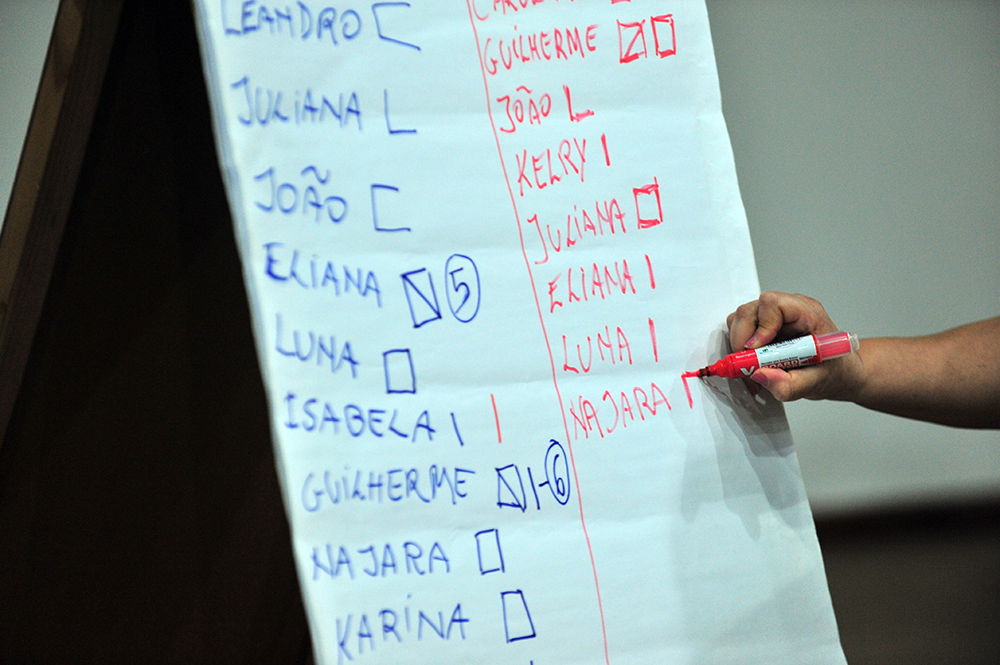 LEANDRO
JULIANA
JOÃO
ELIANA 5
LUNA
ISABELA I I
GUILHERME I-6
NAJARA
KARINA
GUILHERME
JOÃO
KELRY I
JULIANA
ELIANA I
LUNA I
NAJARA